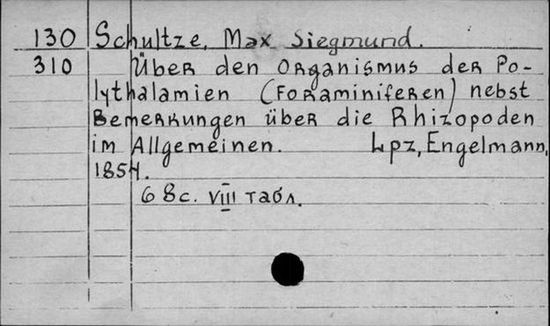 130 Schultze, Max Siegmund.
310 Über den Organismus der Po-
lythalamien (Foraminiferen) nebst
Bemerkungen über die Rhizopoden
im Allgemeinen. Lpz, Engelmann,
1854.
68с. VIII табл.